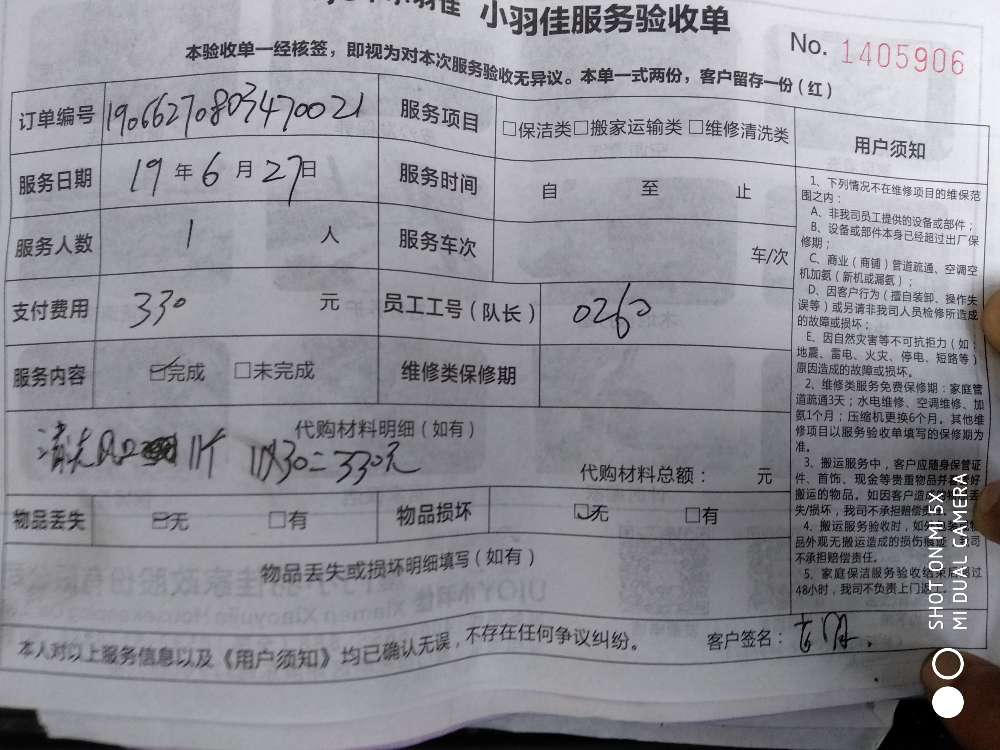 小羽佳 小羽佳服务验收单
No. 1405906
本验收单一经核签，即视为对本次服务验收无异议。本单一式两份，客户留存一份（红）
订单编号 19066270803470021 服务项目 □保洁类□搬家运输类□维修清洗类
服务日期 19年6月27日 服务时间 自 至 止
服务人数 1 人 服务车次 车/次
支付费用 330 元 员工工号（队长） 0260
服务内容 ☑完成 □未完成 维修类保修期
代购材料明细（如有）
清洗风口 11个 11X30=330元
代购材料总额： 元
物品丢失 ☑无 □有 物品损坏 ☑无 □有
物品丢失或损坏明细填写（如有）
本人对以上服务信息以及《用户须知》均已确认无误，不存在任何争议纠纷。 客户签名：
用户须知
1、下列情况不在维修项目的维保范
围之内：
A、非我司员工提供的设备或部件；
B、设备或部件本身已经超过出厂保
修期；
C、商业（商铺）管道疏通、空调空
机加氨（新机或漏氨）；
D、因客户行为（擅自装卸、操作失
误等）或另请非我司人员检修所造成
的故障或损坏；
E、因自然灾害等不可抗拒力（如：
地震、雷电、火灾、停电、短路等）
原因造成的故障或损坏。
2、维修类服务免费保修期：家庭管
道疏通3天；水电维修、空调维修、加
氨1个月；压缩机更换6个月。其他维
修项目以服务验收单填写的保修期为
准。
3、搬运服务中，客户应随身保管证
件、首饰、现金等贵重物品并
搬运的物品。如因客户造
失/损坏，我司不承担赔偿责
4、搬运服务验收时，如
品外观无搬运造成的损伤痕迹，我司
不承担赔偿责任。
5、家庭保洁服务验收结束后超过
48小时，我司不负责上门返工。
SHOT ON MI 5X
MI DUAL CAMERA